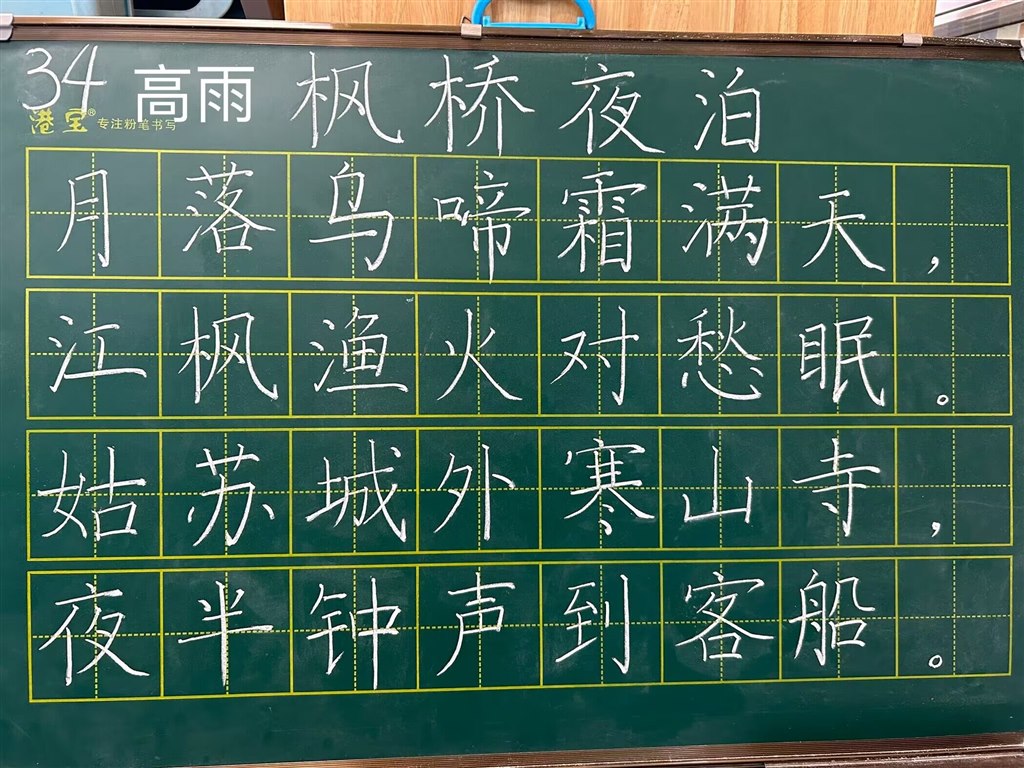 34 高雨 枫桥夜泊
港宝® 专注粉笔书写
月落鸟啼霜满天，
江枫渔火对愁眠。
姑苏城外寒山寺，
夜半钟声到客船。